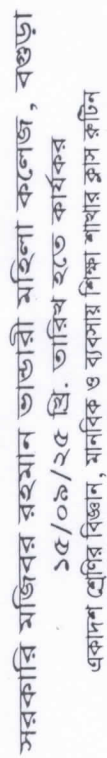 সরকারি মজিবর রহমান ভান্ডারী মহিলা কলেজ, বগুড়া
১৫/০৯/২৫ খ্রি. তারিখ হতে কার্যকর
একাদশ শ্রেণির বিজ্ঞান, মানবিক ও ব্যবসায় শিক্ষা শাখার ক্লাস রুটিন